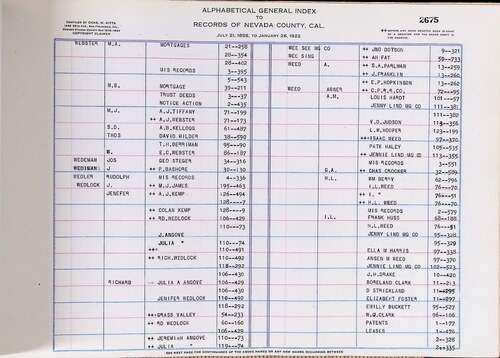 ALPHABETICAL GENERAL INDEX
TO
RECORDS OF NEVADA COUNTY, CAL.
JULY 21, 1856, TO JANUARY 26, 1922
COPYRIGHT CLAIMED
2675
WEBSTER M.A. MORTGAGES 21--258
28--354
28--402
MIS RECORDS 3--395
5--543
M.B. MORTGAGE 39--211
TRUST DEEDS 3--37
NOTICE ACTION 2--435
M.J. A.J.TIFFANY 71--199
++ A.J.WEBSTER 71--173
S.D. A.B.KELLOGG 61--487
THOS DAVID WILDER 38--590
T.H.BERRIMAN 95--90
W. E.C.WEBSTER 86--187
WEDEMAN JOS GEO STEGER 34--316
WEDIMAN J ++ P.BASHORE 30--130
WEDLER RUDOLPH MIS RECORDS 4--336
WEDLOCK J. ++ M.J.JAMES 195--463
JENEFER ++ A.J.KEMP 126--494
128---7
++ COLAN KEMP 128---9
++ RD.WEDLOCK 106--429
110---73
J.ANGOVE
JULIA " 110---74
++ 110--491
++ RICH.WEDLOCK 110--492
118--292
106--430
RICHARD JULIA A ANGOVE 106--429
106--430
JENIFER WEDLOCK 110--492
118--292
++GRASS VALLEY 54--233
++ RD WEDLOCK 60--160
106--430
++ JEREMIAH ANGOVE 110---73
++ JULIA " 119---74
WEE SEE MG CO ++ JNO DOTSON 9--321
WEE SING ++ AH FAT 59--733
REED A. ++ S.A.PARLMAN 13--259
++ J.FRANKLIN 13--260
REED ABNER ++ C.P.R.R.CO. 72---95
A.M. LOUIS HARDT 101---57
JENNY LIND MG CO 111--381
111--382
V.D.JUDSON 113--356
L.W.HOOPER 123--199
++ISAAC REED 97--370
PATK HALEY 105--535
++ JENNIE LIND MG CO 113--355
MIS RECORDS 3--551
G.A. ++ CHAS CROCKER 32--589
H.L. WM BERRY 62--796
I.L.REED 76---70
++ I. " 76---51
++ H.L.REED 76---70
MIS RECORDS 2--579
I.L. FRANK HUSS 68--188
H.L.REED 76---51
JENNY LIND MG CO 95--328
95--329
ELLA M HARRIS 97--338
ANSEN M REED 97--370
JENNIE LIND MG CO 102--523
J.H.DRAKE 10--420
BORELAND CLARK 11--213
D STRICKLAND 11--295
ELIZABEHT FOSTER 11--297
EMILLY BUCKETT 95--527
W.Q.CLARK 96--106
PATENTS 1--177
LEASES 1--426
2--328
2--335
SEE NEXT PAGE FOR CONTINUANCE OF THE ABOVE NAMES OR ANY NEW NAMES OCCURRING BETWEEN